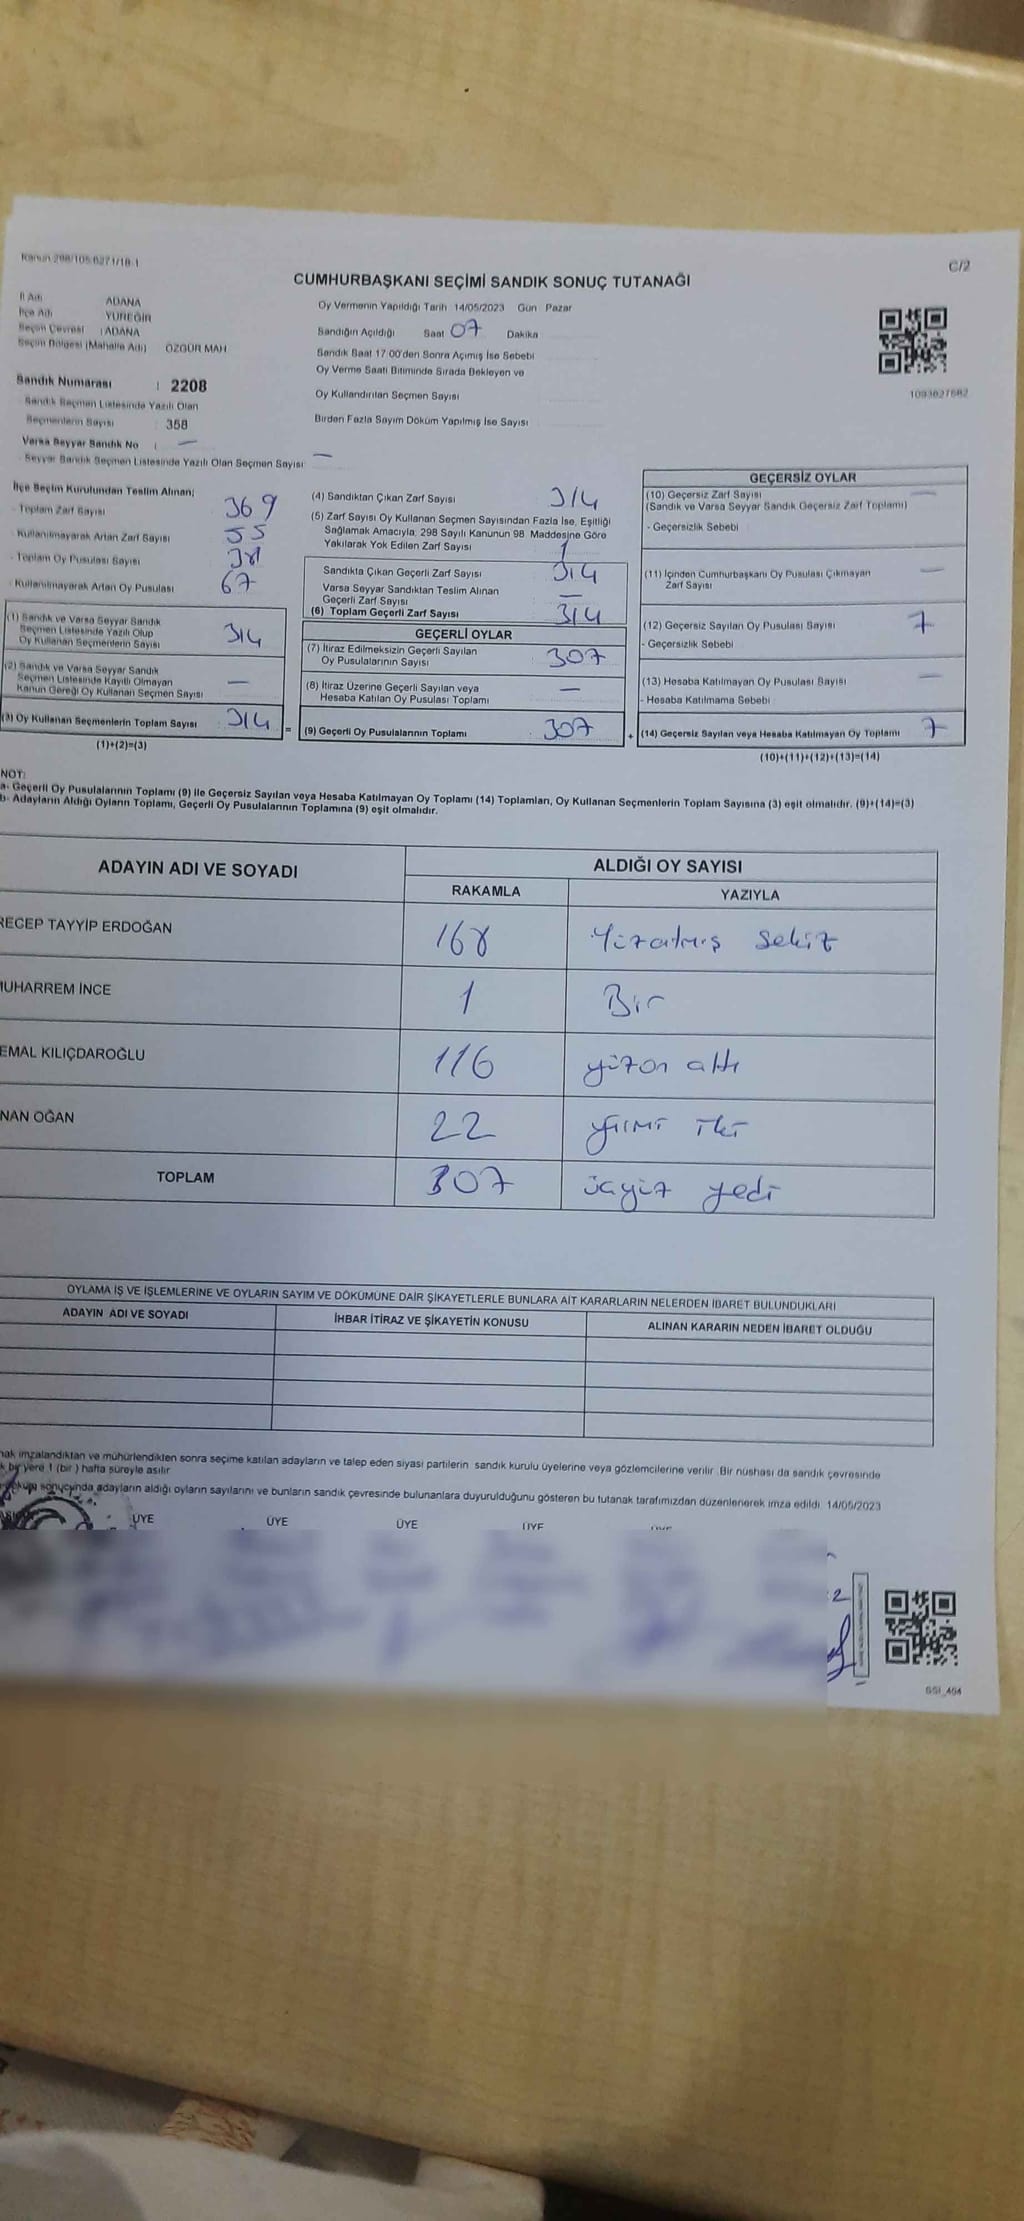 Kanun 298/105 6271/18-1
C/2
CUMHURBAŞKANI SEÇİMİ SANDIK SONUÇ TUTANAĞI
İl Adı ADANA
İlçe Adı YÜREĞİR
Seçim Çevresi : ADANA
Seçim Bölgesi (Mahalle Adı) ÖZGÜR MAH
Sandık Numarası : 2208
Sandık Seçmen Listesinde Yazılı Olan
Seçmenlerin Sayısı : 358
Varsa Seyyar Sandık No : —
- Seyyar Sandık Seçmen Listesinde Yazılı Olan Seçmen Sayısı: —
Oy Vermenin Yapıldığı Tarih 14/05/2023 Gün Pazar
Sandığın Açıldığı Saat 07 Dakika
Sandık Saat 17:00'den Sonra Açımış İse Sebebi
Oy Verme Saati Bitiminde Sırada Bekleyen ve
Oy Kullandırılan Seçmen Sayısı
Birden Fazla Sayım Döküm Yapılmış İse Sayısı
1093627682
İlçe Seçim Kurulundan Teslim Alınan;
- Toplam Zarf Sayısı 369
- Kullanılmayarak Artan Zarf Sayısı 55
- Toplam Oy Pusulası Sayısı
- Kullanılmayarak Artan Oy Pusulası 67
(1) Sandık ve Varsa Seyyar Sandık
Seçmen Listesinde Yazılı Olup
Oy Kullanan Seçmenlerin Sayısı : 314
(2) Sandık ve Varsa Seyyar Sandık
Seçmen Listesinde Kayıtlı Olmayan
Kanun Gereği Oy Kullanan Seçmen Sayısı —
(3) Oy Kullanan Seçmenlerin Toplam Sayısı : 314 =
(1)+(2)=(3)
(4) Sandıktan Çıkan Zarf Sayısı 314
(5) Zarf Sayısı Oy Kullanan Seçmen Sayısından Fazla İse, Eşitliği
Sağlamak Amacıyla, 298 Sayılı Kanunun 98. Maddesine Göre
Yakılarak Yok Edilen Zarf Sayısı
Sandıkta Çıkan Geçerli Zarf Sayısı 314
Varsa Seyyar Sandıktan Teslim Alınan
Geçerli Zarf Sayısı —
(6) Toplam Geçerli Zarf Sayısı 314
GEÇERLİ OYLAR
(7) İtiraz Edilmeksizin Geçerli Sayılan
Oy Pusulalarının Sayısı : 307
(8) İtiraz Üzerine Geçerli Sayılan veya
Hesaba Katılan Oy Pusulası Toplamı —
(9) Geçerli Oy Pusulalarının Toplamı : 307 +
GEÇERSİZ OYLAR
(10) Geçersiz Zarf Sayısı —
(Sandık ve Varsa Seyyar Sandık Geçersiz Zarf Toplamı)
- Geçersizlik Sebebi
(11) İçinden Cumhurbaşkanı Oy Pusulası Çıkmayan —
Zarf Sayısı
(12) Geçersiz Sayılan Oy Pusulası Sayısı 7
- Geçersizlik Sebebi
(13) Hesaba Katılmayan Oy Pusulası Sayısı —
- Hesaba Katılmama Sebebi
(14) Geçersiz Sayılan veya Hesaba Katılmayan Oy Toplamı 7
(10)+(11)+(12)+(13)=(14)
NOT:
a- Geçerli Oy Pusulalarının Toplamı (9) ile Geçersiz Sayılan veya Hesaba Katılmayan Oy Toplamı (14) Toplamları, Oy Kullanan Seçmenlerin Toplam Sayısına (3) eşit olmalıdır. (9)+(14)=(3)
b- Adayların Aldığı Oyların Toplamı, Geçerli Oy Pusulalarının Toplamına (9) eşit olmalıdır.
ADAYIN ADI VE SOYADI
ALDIĞI OY SAYISI
RAKAMLA YAZIYLA
RECEP TAYYİP ERDOĞAN 168 Yüzatmış sekiz
MUHARREM İNCE 1 Bir
EMAL KILIÇDAROĞLU 116 yüzon altı
NAN OĞAN 22 yirmi iki
TOPLAM 307 üçyüz yedi
OYLAMA İŞ VE İŞLEMLERİNE VE OYLARIN SAYIM VE DÖKÜMÜNE DAİR ŞİKAYETLERLE BUNLARA AİT KARARLARIN NELERDEN İBARET BULUNDUKLARI
ADAYIN ADI VE SOYADI İHBAR İTİRAZ VE ŞİKAYETİN KONUSU ALINAN KARARIN NEDEN İBARET OLDUĞU
nak imzalandıktan ve mühürlendikten sonra seçime katılan adayların ve talep eden siyasi partilerin sandık kurulu üyelerine veya gözlemcilerine verilir. Bir nüshası da sandık çevresinde
k bir yere 1 (bir) hafta süreyle asılır
sonucunda adayların aldığı oyların sayılarını ve bunların sandık çevresinde bulunanlara duyurulduğunu gösteren bu tutanak tarafımızdan düzenlenerek imza edildi. 14/05/2023
ÜYE ÜYE ÜYE ÜYE
2
SSI_454